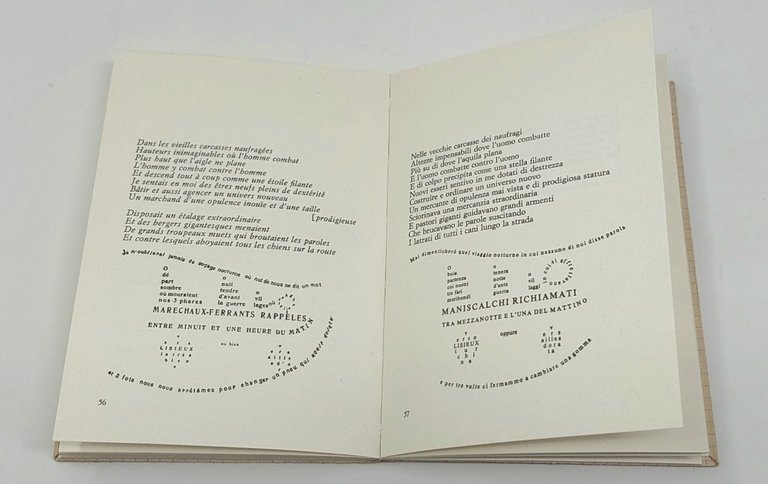 Dans les vieilles carcasses naufragées
Hauteurs inimaginables où l'homme combat
Plus haut que l'aigle ne plane
L'homme y combat contre l'homme
Et descend tout à coup comme une étoile filante
Je sentais en moi des êtres neufs pleins de dextérité
Bâtir et aussi agencer un univers nouveau
Un marchand d'une opulence inouïe et d'une taille
[prodigieuse
Disposait un étalage extraordinaire
Et des bergers gigantesques menaient
De grands troupeaux muets qui broutaient les paroles
Et contre lesquels aboyaient tous les chiens sur la route
Je n'oublierai jamais ce voyage nocturne où nul de nous ne dit un mot
O
dé
part
sombre
où mouraient
nos 3 phares
O
nuit
tendre
d'avant
la guerre
O
vil
lages où
MARECHAUX-FERRANTS RAPPELES
ENTRE MINUIT ET UNE HEURE DU MATIN
v
ers
LISIEUX
la très
bleue
ou bien
v
ers
aille
s d'o
r
et 3 fois nous nous arrêtâmes pour changer un pneu qui avait éclaté
56
Nelle vecchie carcasse dei naufragi
Altezze impensabili dove l'uomo combatte
Più su di dove l'aquila plana
E l'uomo combatte contro l'uomo
E di colpo precipita come una stella filante
Nuovi esseri sentivo in me dotati di destrezza
Costruire e ordinare un universo nuovo
Un mercante di opulenza mai vista e di prodigiosa statura
Sciorinava una mercanzia straordinaria
E pastori giganti guidavano grandi armenti
Che brucavano le parole suscitando
I latrati di tutti i cani lungo la strada
Mai dimenticherò quel viaggio notturno in cui nessuno di noi disse parola
O
buia
partenza
coi nostri
tre fari
moribondi
O
tenera
notte
d'ante
guerra
O
vil
laggi
MANISCALCHI RICHIAMATI
TRA MEZZANOTTE E L'UNA DEL MATTINO
v
erso
LISIEUX
tur
chi
na
oppure
v
ers
ailles
dora
ta
e per tre volte ci fermammo a cambiare una gomma
57